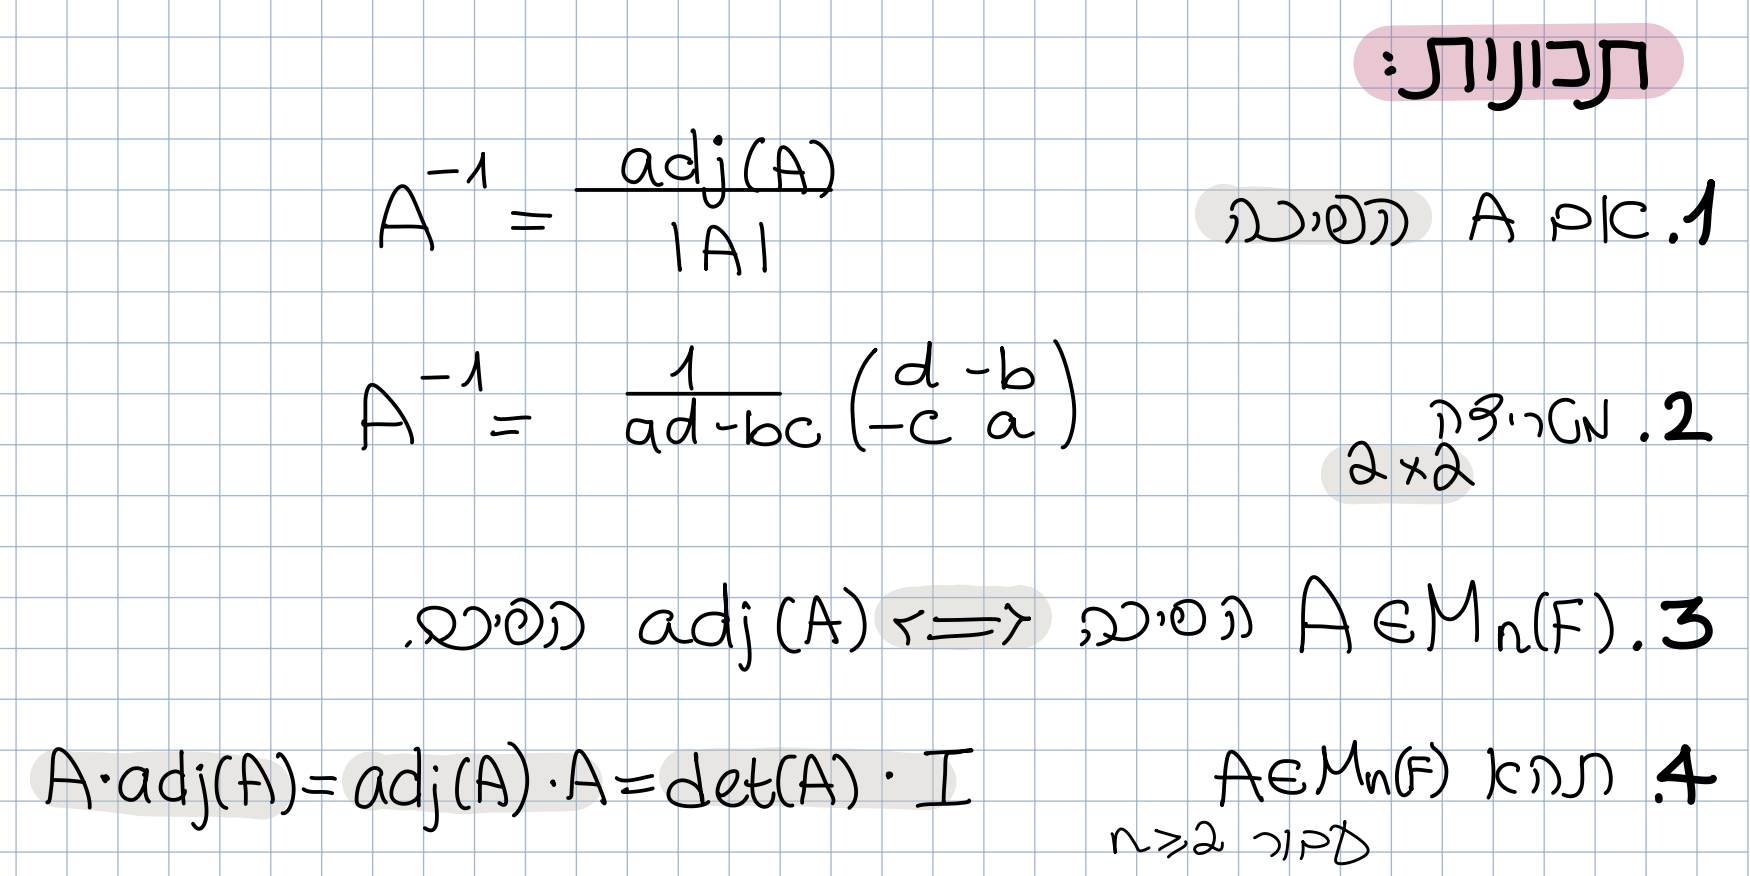 תכונות:
1. אם A הפיכה A⁻¹ = adj(A) / |A|
2. מטריצה 2×2 A⁻¹ = 1/(ad-bc) (d -b ; -c a)
3. A∈Mₙ(F) הפיכה <=> adj(A) הפיכה.
4. תהא A∈Mₙ(F) A·adj(A)=adj(A)·A=det(A)·I
עבור n⩾2